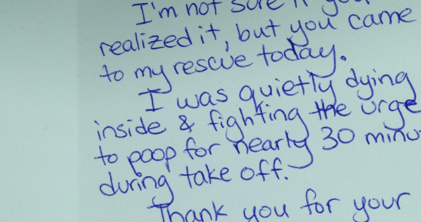 I'm not sure if you
realized it, but you came
to my rescue today.
I was quietly dying
inside & fighting the urge
to poop for nearly 30 minu
during take off.
Thank you for your